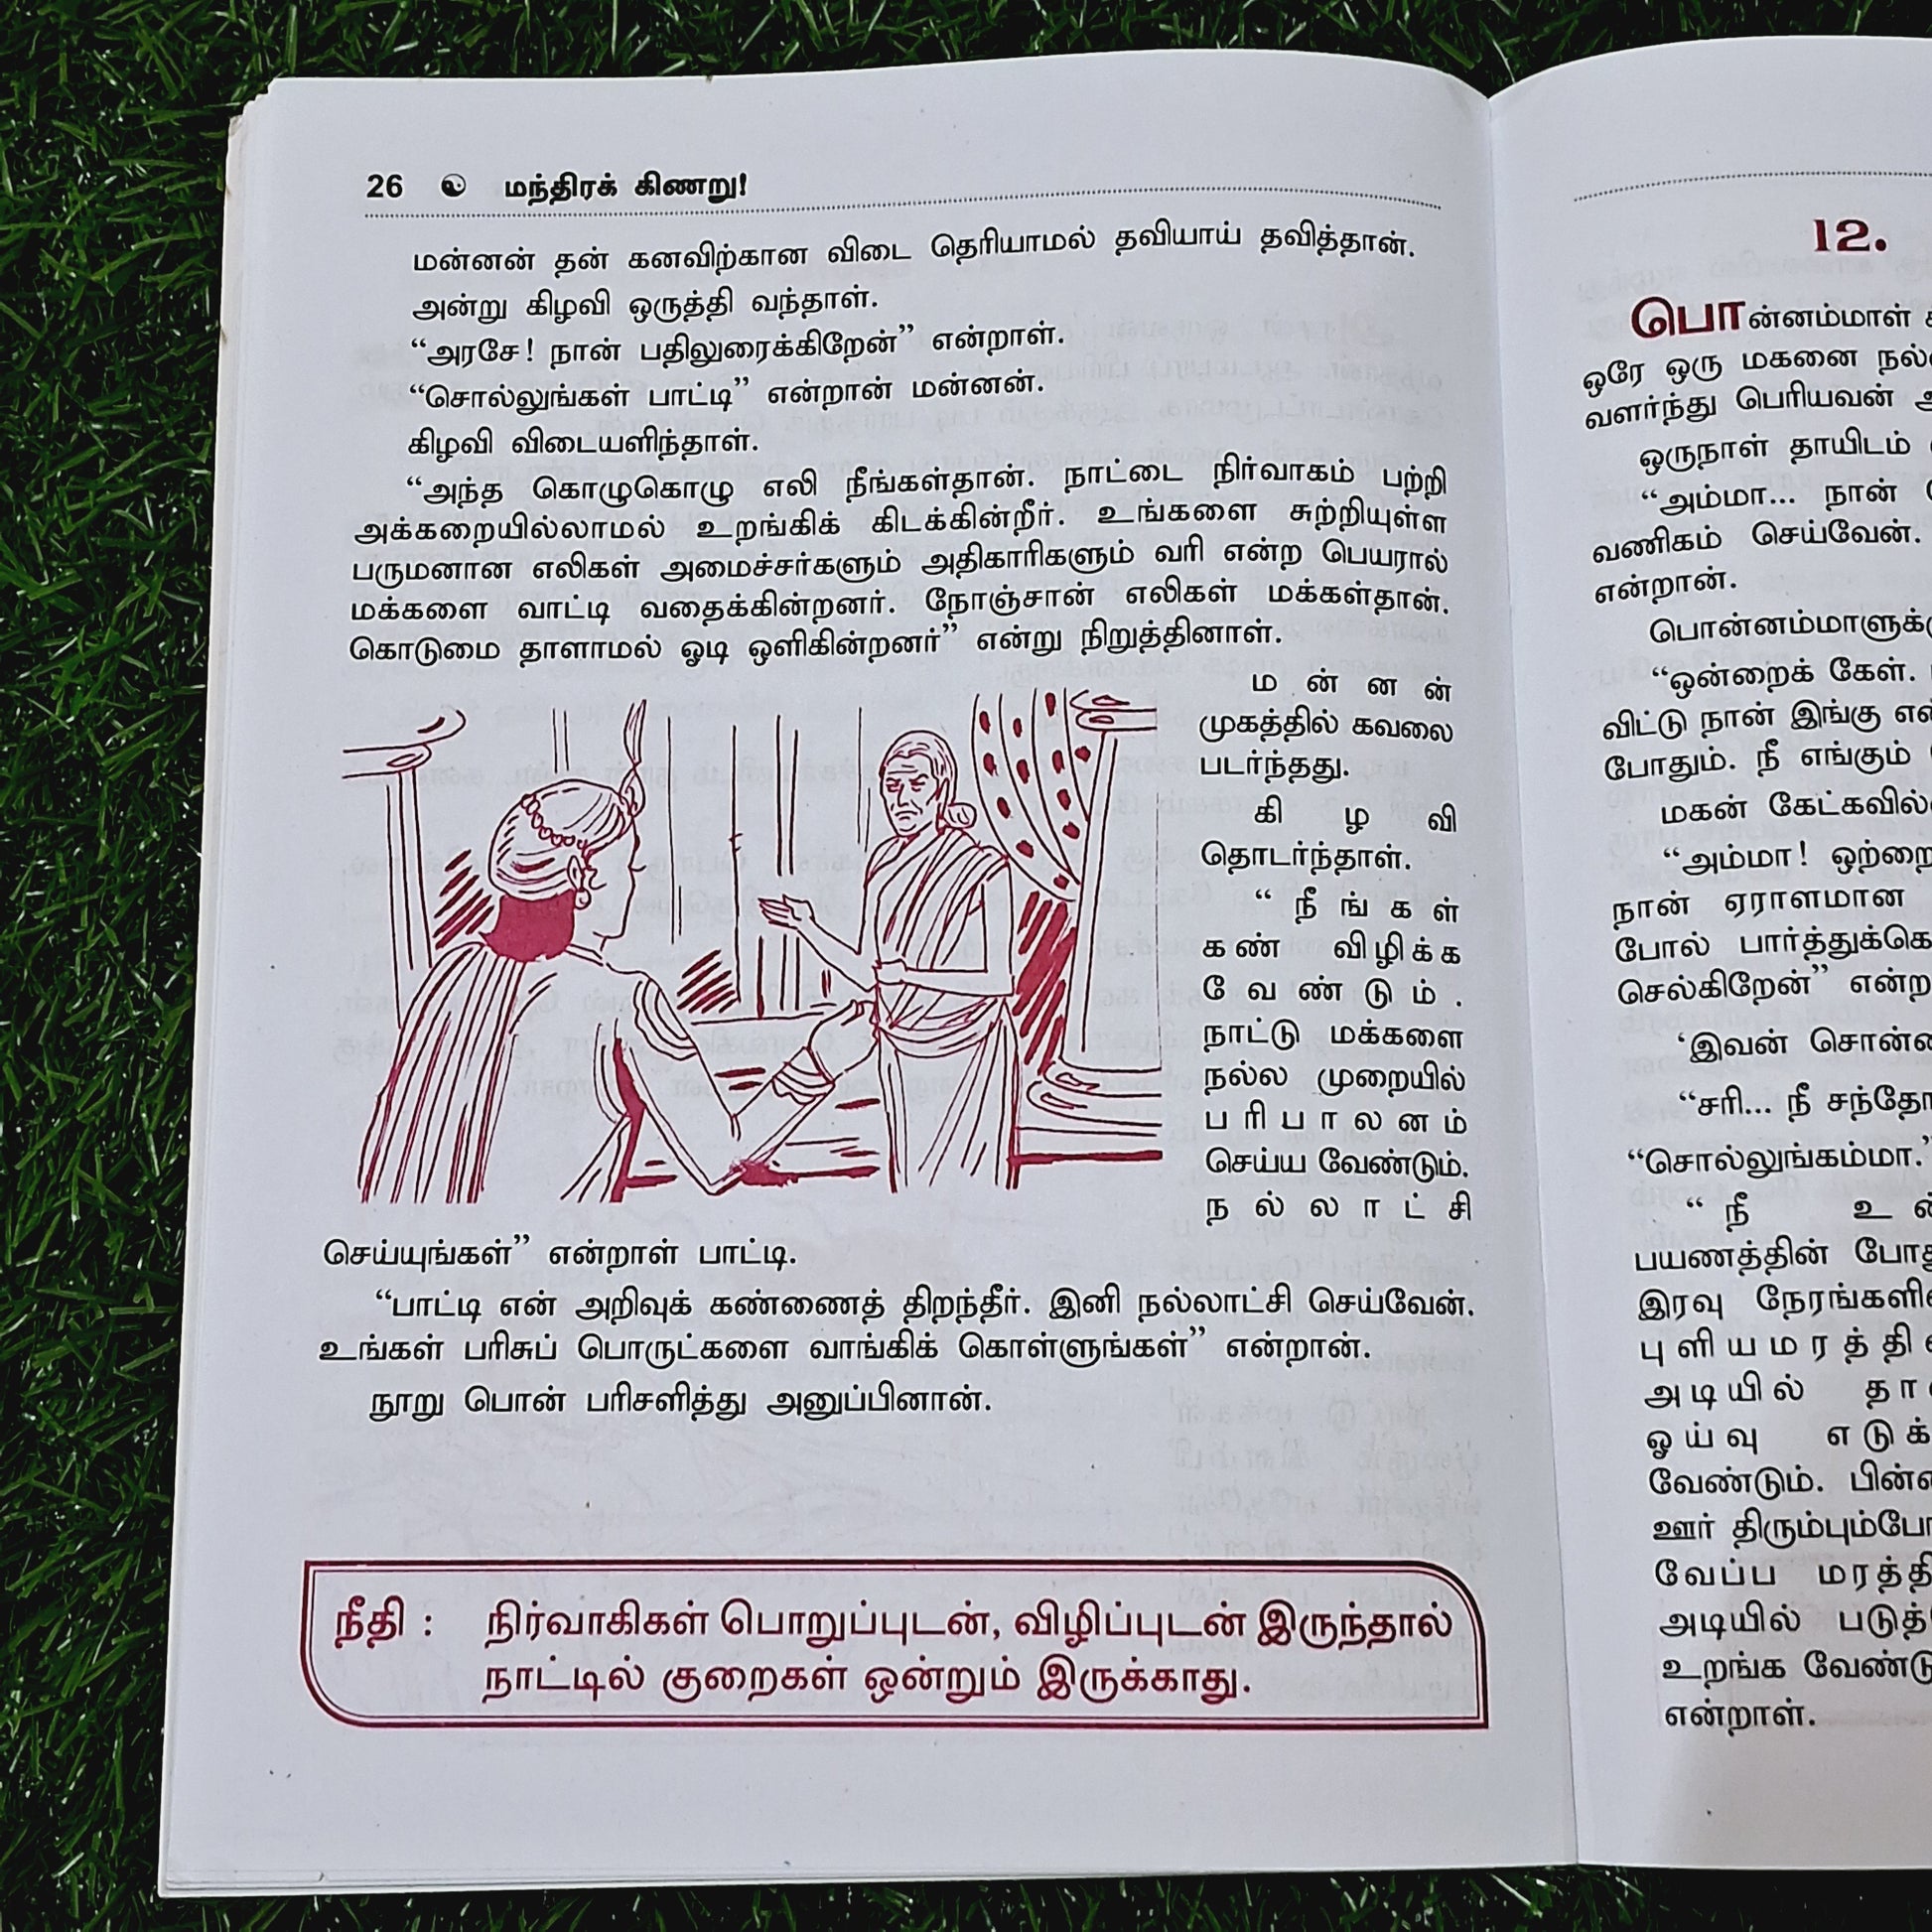 26 மந்திரக் கிணறு!
மன்னன் தன் கனவிற்கான விடை தெரியாமல் தவியாய் தவித்தான்.
அன்று கிழவி ஒருத்தி வந்தாள்.
“அரசே! நான் பதிலுரைக்கிறேன்” என்றாள்.
“சொல்லுங்கள் பாட்டி” என்றான் மன்னன்.
கிழவி விடையளிந்தாள்.
“அந்த கொழுகொழு எலி நீங்கள்தான். நாட்டை நிர்வாகம் பற்றி
அக்கறையில்லாமல் உறங்கிக் கிடக்கின்றீர். உங்களை சுற்றியுள்ள
பருமனான எலிகள் அமைச்சர்களும் அதிகாரிகளும் வரி என்ற பெயரால்
மக்களை வாட்டி வதைக்கின்றனர். நோஞ்சான் எலிகள் மக்கள்தான்.
கொடுமை தாளாமல் ஓடி ஒளிகின்றனர்” என்று நிறுத்தினாள்.
மன்னன்
முகத்தில் கவலை
படர்ந்தது.
கிழவி
தொடர்ந்தாள்.
“நீங்கள்
கண் விழிக்க
வேண்டும்.
நாட்டு மக்களை
நல்ல முறையில்
பரிபாலனம்
செய்ய வேண்டும்.
நல்லாட்சி
செய்யுங்கள்” என்றாள் பாட்டி.
“பாட்டி என் அறிவுக் கண்ணைத் திறந்தீர். இனி நல்லாட்சி செய்வேன்.
உங்கள் பரிசுப் பொருட்களை வாங்கிக் கொள்ளுங்கள்” என்றான்.
நூறு பொன் பரிசளித்து அனுப்பினான்.
நீதி : நிர்வாகிகள் பொறுப்புடன், விழிப்புடன் இருந்தால்
நாட்டில் குறைகள் ஒன்றும் இருக்காது.
12.
பொன்னம்மாள்
ஒரே ஒரு மகனை
வளர்ந்து பெரியவன்
ஒருநாள் தாயிடம்
“அம்மா... நான்
வணிகம் செய்வேன்.
என்றான்.
“ஒன்றைக் கேள்.
விட்டு நான் இங்கு
போதும். நீ எங்கும்
மகன்
“அம்மா! ஒற்றை
நான் ஏராளமான
போல்
செல்கிறேன்”
‘இவன்
“சரி... நீ
“சொல்லுங்கம்மா.
“நீ
பயணத்தின்
இரவு
அடியில்
ஓய்வு
வேண்டும்.
ஊர்
வேப்ப
அடியில்
உறங்க
என்றாள்.